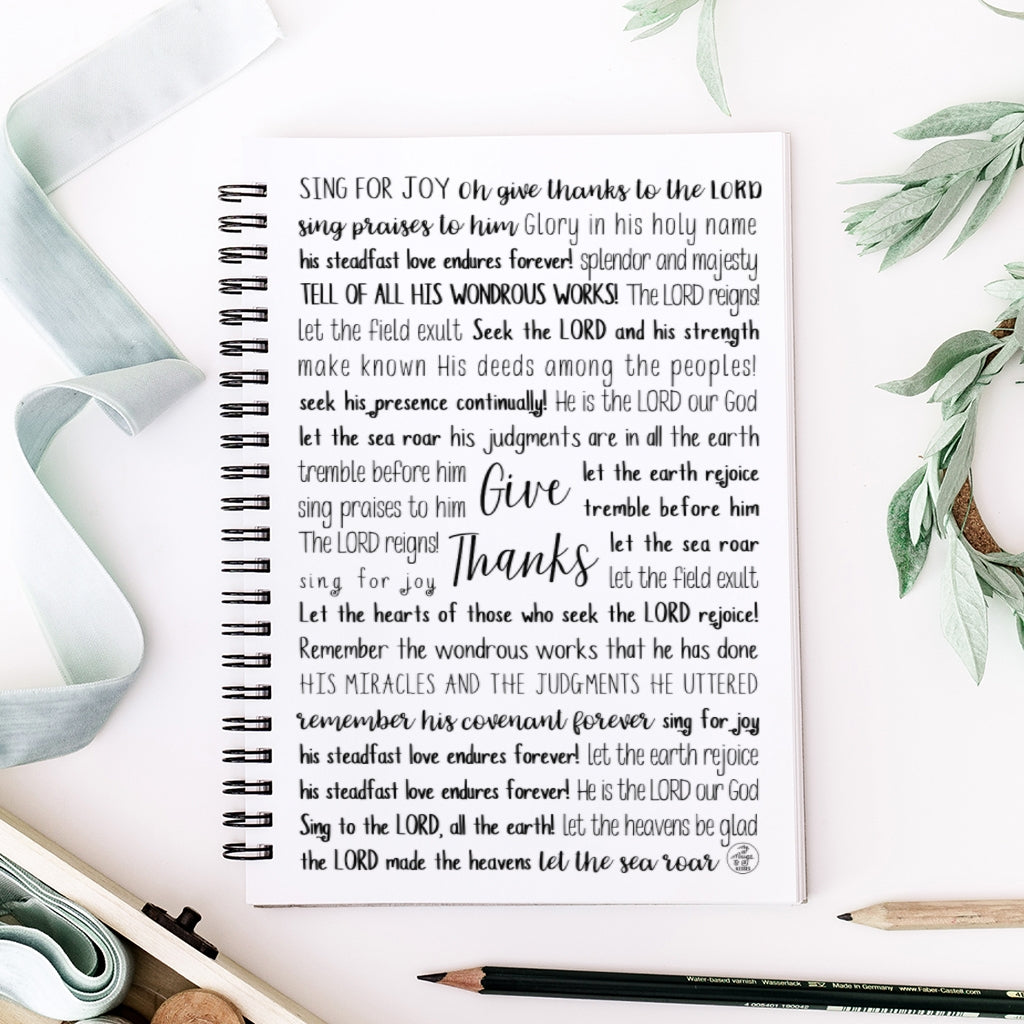 SING FOR JOY Oh give thanks to the LORD
sing praises to him Glory in his holy name
his steadfast love endures forever! splendor and majesty
TELL OF ALL HIS WONDROUS WORKS! The LORD reigns!
let the field exult Seek the LORD and his strength
make known His deeds among the peoples!
seek his presence continually! He is the LORD our God
let the sea roar his judgments are in all the earth
tremble before him
sing praises to him
Give
let the earth rejoice
tremble before him
The LORD reigns!
sing for joy
Thanks
let the sea roar
let the field exult
Let the hearts of those who seek the LORD rejoice!
Remember the wondrous works that he has done
HIS MIRACLES AND THE JUDGMENTS HE UTTERED
remember his covenant forever sing for joy
his steadfast love endures forever! let the earth rejoice
his steadfast love endures forever! He is the LORD our God
Sing to the LORD, all the earth! let the heavens be glad
the LORD made the heavens let the sea roar
Water-based varnish Wasserlack Made in Germany www.Faber-Castell.com
4 005401 190042